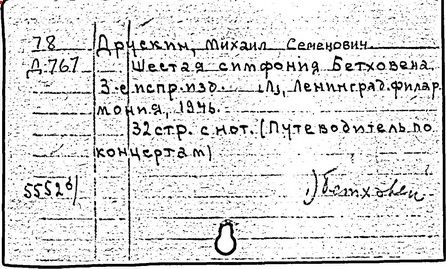 78 Друскин, Михаил Семенович.
Д.767 Шестая симфония Бетховена.
3-е испр. изд. Л., Ленинград. филар
мония, 1946.
32 стр. с нот. (Путеводитель по
концертам)
5552б/ 1) Бетховен